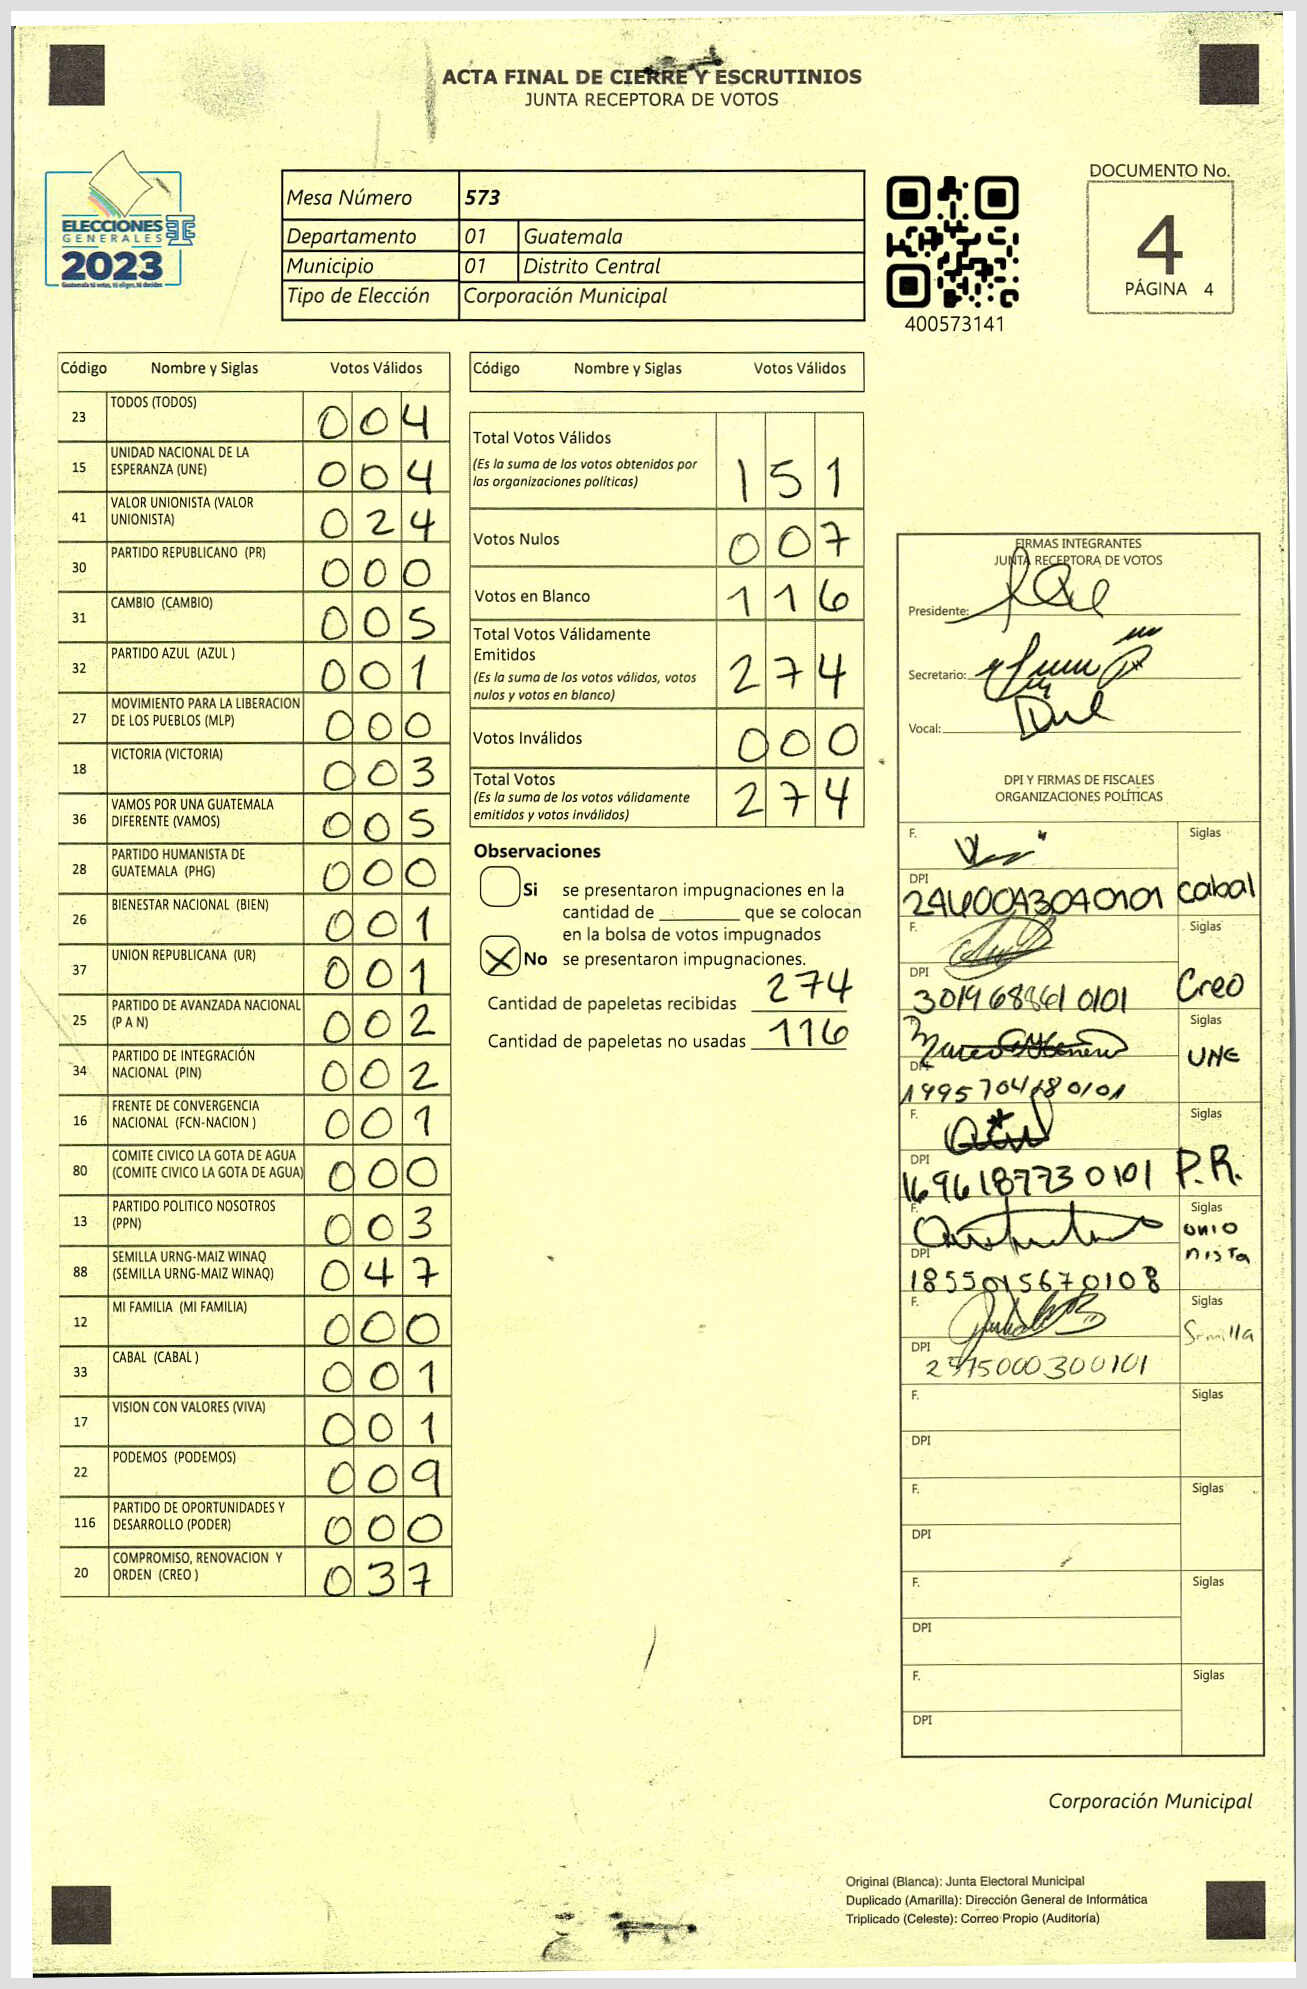 ACTA FINAL DE CIERRE Y ESCRUTINIOS
JUNTA RECEPTORA DE VOTOS
ELECCIONES
GENERALES
2023
Guatemala tú votas, tú eliges, tú decides
Mesa Número 573
Departamento 01 Guatemala
Municipio 01 Distrito Central
Tipo de Elección Corporación Municipal
400573141
DOCUMENTO No.
4
PÁGINA 4
Código Nombre y Siglas Votos Válidos
23 TODOS (TODOS) 004
15 UNIDAD NACIONAL DE LA
ESPERANZA (UNE) 004
41 VALOR UNIONISTA (VALOR
UNIONISTA) 024
30 PARTIDO REPUBLICANO (PR) 000
31 CAMBIO (CAMBIO) 005
32 PARTIDO AZUL (AZUL ) 001
27 MOVIMIENTO PARA LA LIBERACION
DE LOS PUEBLOS (MLP) 000
18 VICTORIA (VICTORIA) 003
36 VAMOS POR UNA GUATEMALA
DIFERENTE (VAMOS) 005
28 PARTIDO HUMANISTA DE
GUATEMALA (PHG) 000
26 BIENESTAR NACIONAL (BIEN) 001
37 UNION REPUBLICANA (UR) 001
25 PARTIDO DE AVANZADA NACIONAL
(P A N) 002
34 PARTIDO DE INTEGRACIÓN
NACIONAL (PIN) 002
16 FRENTE DE CONVERGENCIA
NACIONAL (FCN-NACION ) 001
80 COMITE CIVICO LA GOTA DE AGUA
(COMITE CIVICO LA GOTA DE AGUA) 000
13 PARTIDO POLITICO NOSOTROS
(PPN) 003
88 SEMILLA URNG-MAIZ WINAQ
(SEMILLA URNG-MAIZ WINAQ) 047
12 MI FAMILIA (MI FAMILIA) 000
33 CABAL (CABAL ) 001
17 VISION CON VALORES (VIVA) 001
22 PODEMOS (PODEMOS) 009
116 PARTIDO DE OPORTUNIDADES Y
DESARROLLO (PODER) 000
20 COMPROMISO, RENOVACION Y
ORDEN (CREO ) 037
Código Nombre y Siglas Votos Válidos
Total Votos Válidos
(Es la suma de los votos obtenidos por
las organizaciones políticas) 151
Votos Nulos 007
Votos en Blanco 116
Total Votos Válidamente
Emitidos
(Es la suma de los votos válidos, votos
nulos y votos en blanco) 274
Votos Inválidos 000
Total Votos
(Es la suma de los votos válidamente
emitidos y votos inválidos) 274
Observaciones
Si se presentaron impugnaciones en la
cantidad de ________ que se colocan
en la bolsa de votos impugnados
X No se presentaron impugnaciones.
Cantidad de papeletas recibidas 274
Cantidad de papeletas no usadas 116
FIRMAS INTEGRANTES
JUNTA RECEPTORA DE VOTOS
Presidente:
Secretario:
Vocal:
DPI Y FIRMAS DE FISCALES
ORGANIZACIONES POLÍTICAS
F. Siglas
DPI
Cabal
F. Siglas
DPI
Creo
F. Siglas
DPI
UNE
1995704180101
F. Siglas
DPI
1696187730101 P.R.
F. Siglas
Unio
nista
DPI
1855015670108
F. Siglas
Semilla
DPI
F. Siglas
DPI
F. Siglas
DPI
F. Siglas
DPI
F. Siglas
DPI
Corporación Municipal
Original (Blanca): Junta Electoral Municipal
Duplicado (Amarilla): Dirección General de Informática
Triplicado (Celeste): Correo Propio (Auditoría)